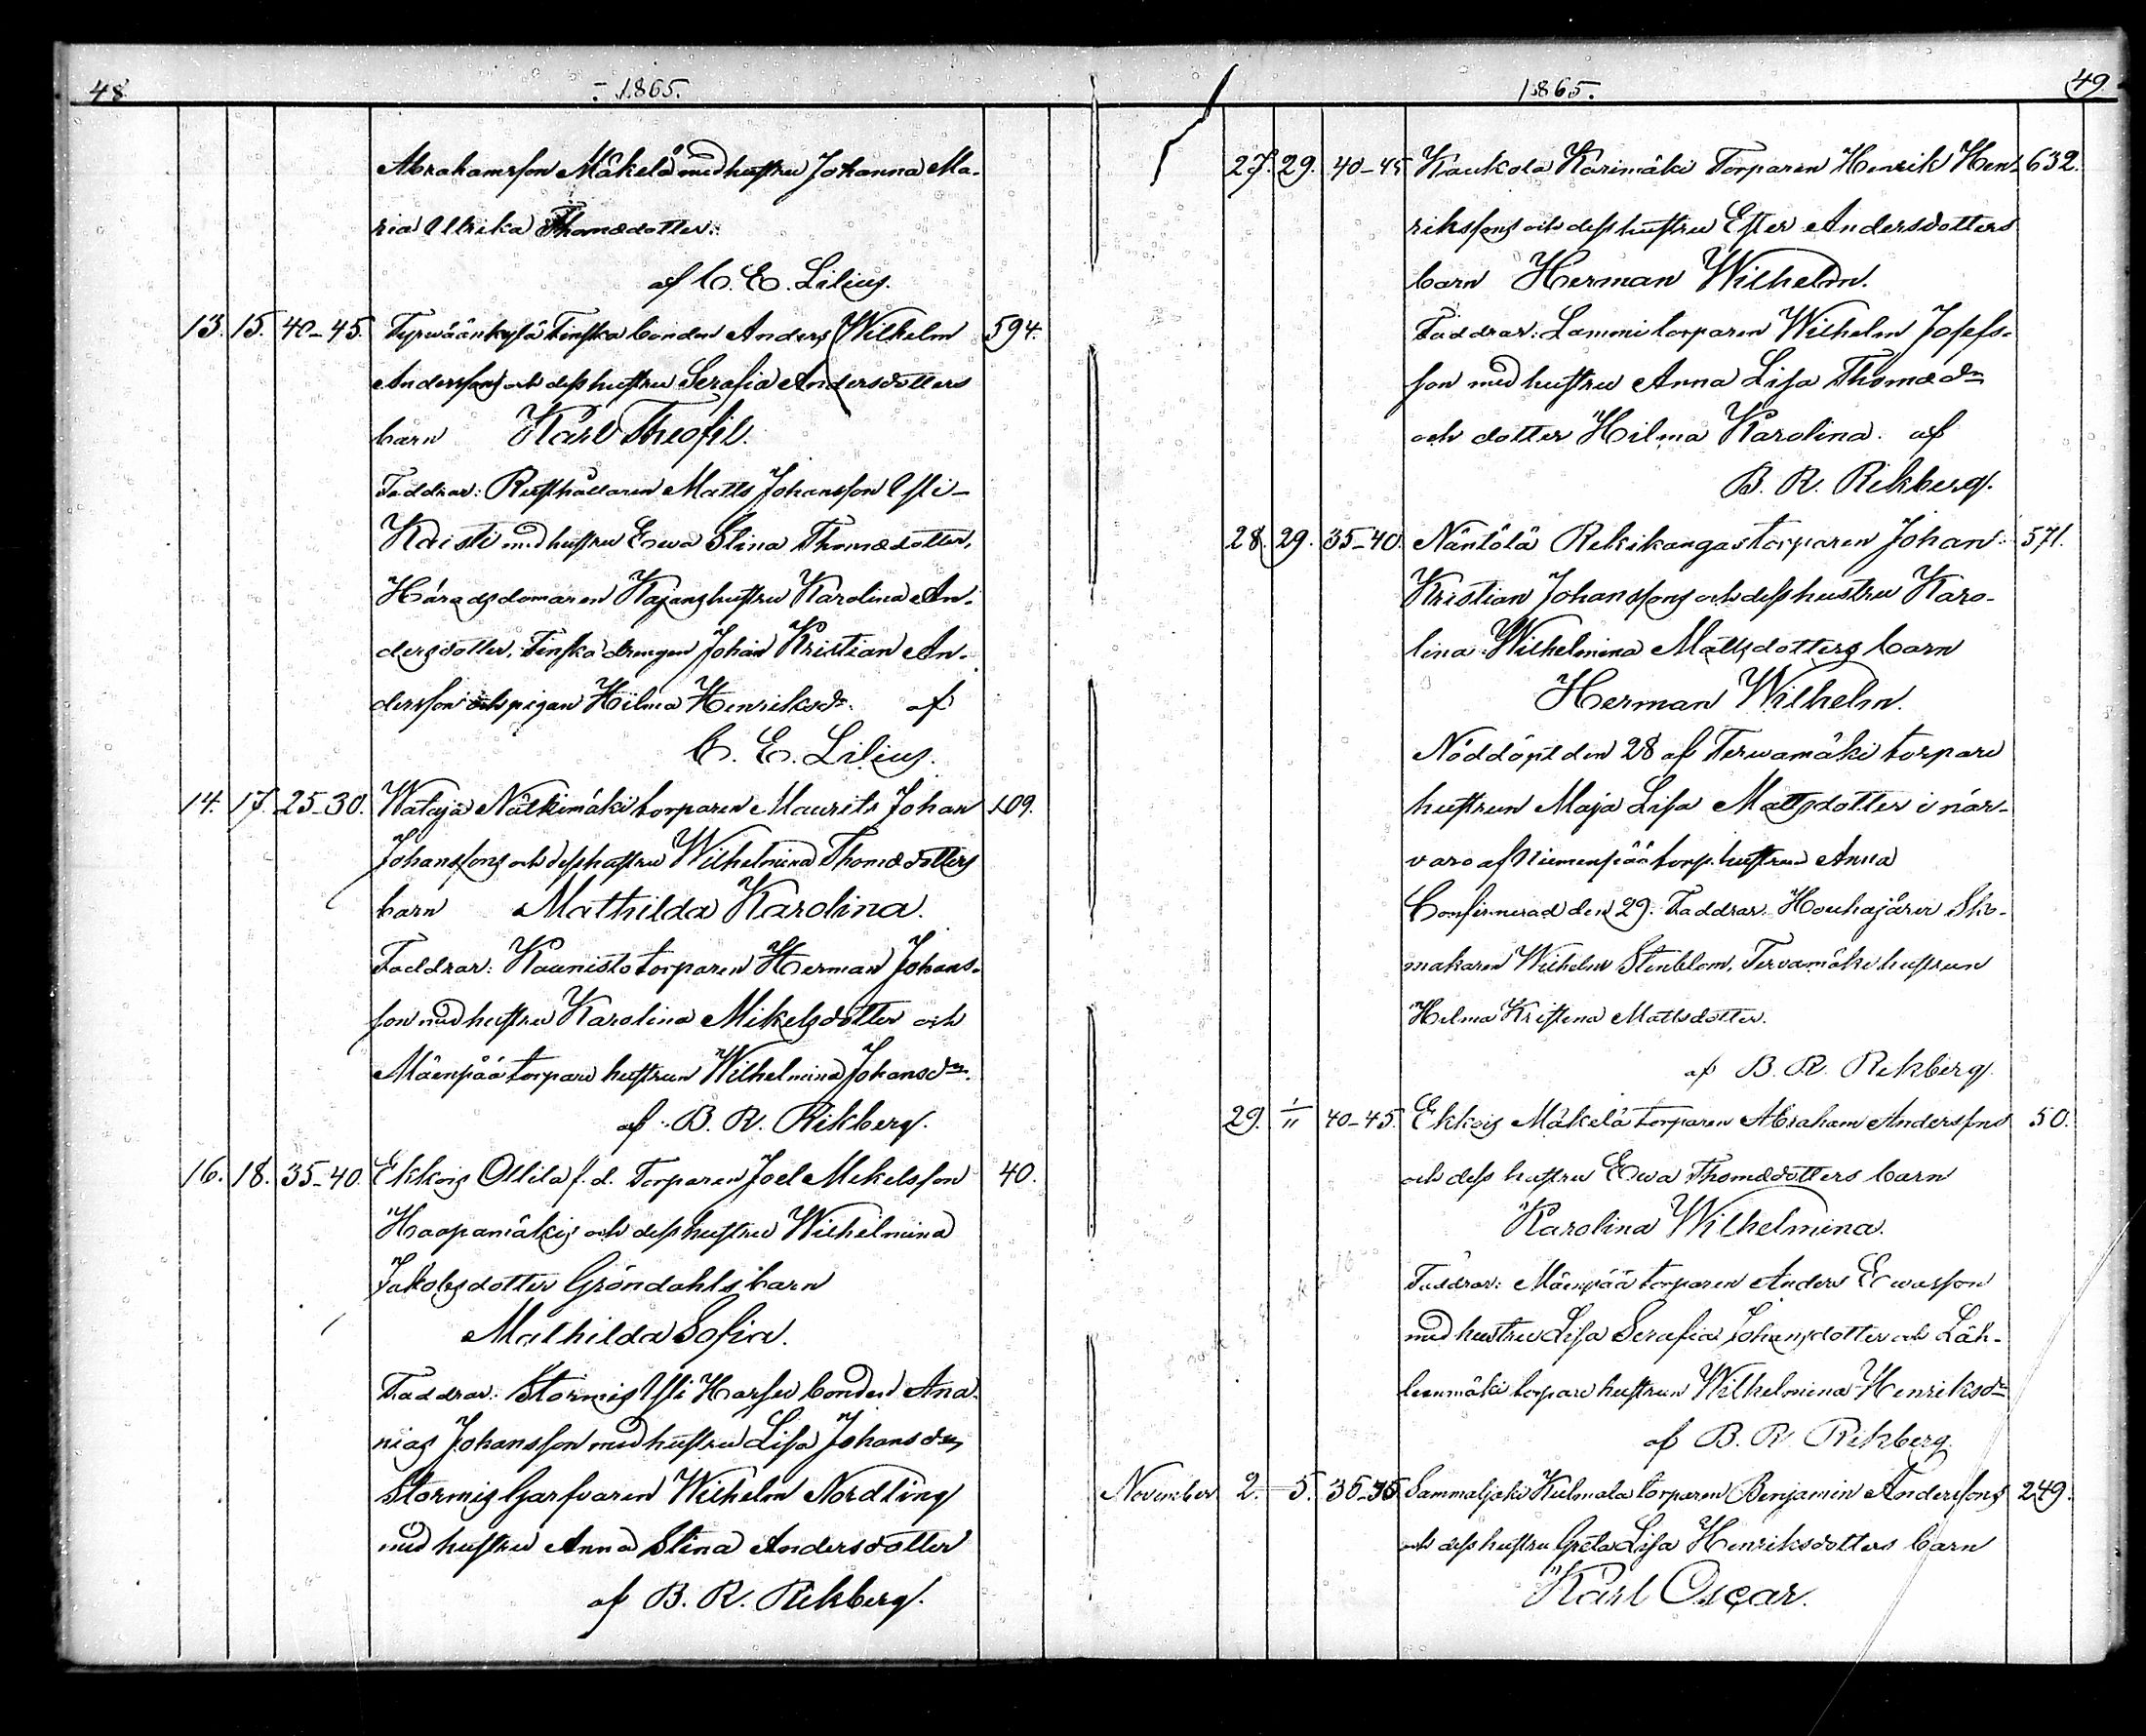 48
1865.
Abrahamsson Mäkelä med hustru Johanna Ma-
ria Ulrika Thomædotter.
af C. E. Lilius.
13. 15. 40-45. Tyrwäänkylä Finska bonden Anders Wilhelm 594.
Anderssons och dess hustru Serafia Andersdotters
barn Karl Theofil.
Faddrar: Rusthållaren Matts Johansson Isti-
Kaisti med hustru Ewa Stina Thomædotter,
Häradsdomaren Kajans hustru Karolina An-
dersdotter, Finska drengen Johan Kristian An-
dersson och pigan Hilma Henriksdr. af
C. E. Lilius.
14. 17. 25-30. Wataja Nälkimäki torparen Maurits Johan 109.
Johanssons och dess hustru Wilhelmina Thomædotters
barn Mathilda Karolina.
Faddrar: Kaunisto torparen Herman Johans-
son med hustru Karolina Mikelsdotter och
Mäenpää torpare hustrun Wilhelmina Johansdr.
af B. R. Rikberg.
16. 18. 35-40. Ekkois Ollila f. d. Torparen Joel Mikelsson 40.
Haapamäkis och dess hustru Wilhelmina
Jakobsdotter Gröndahls barn
Mathilda Sofia.
Faddrar: Stormis Ysti Harsu bonden Ana-
nias Johansson med hustru Lisa Johansdr,
Stormis Garfvaren Wilhelm Nordling
med hustru Anna Stina Andersdotter
af B. R. Rikberg.
1865.
49
27. 29. 40-45 Kaukola Karimäki Torparen Henrik Hen- 632.
rikssons och dess hustru Ester Andersdotters
barn Herman Wilhelm.
Faddrar: Lammi torparen Wilhelm Josefs-
son med hustru Anna Lisa Thomædr
och dotter Hilma Karolina. af
B. R. Rikberg.
28. 29. 35-40. Näntölä Rekikangas torparen Johan 571.
Kristian Johanssons och dess hustru Karo-
lina Wilhelmina Mattsdotters barn
Herman Wilhelm.
Nöddöpt den 28 af Terwamäki torpare
hustrun Maja Lisa Mattsdotter i när-
varo af Niemenpää torp. hustrun Anna
Confirmerad den 29. Faddrar: Houhajärvi Sko-
makaren Wilhelm Stenblom, Tervamäki hustrun
Helma Kristina Mattsdotter.
af B. R. Rikberg.
29. 1/11 40-45. Ekkois Mäkelä torparen Abraham Anderssons 50.
och dess hustru Ewa Thomædotters barn
Karolina Wilhelmina.
Faddrar: Mäenpää torparen Anders Ewasson
med hustru Lisa Serafia Johansdotter och Läh-
teenmäki torpare hustrun Wilhelmina Henriksdr
af B. R. Rikberg.
November 2. 5. Sammaljoki Kulmala torparen Benjamin Anderssons 249.
och dess hustru Greta Lisa Henriksdotters barn
Karl Oscar.